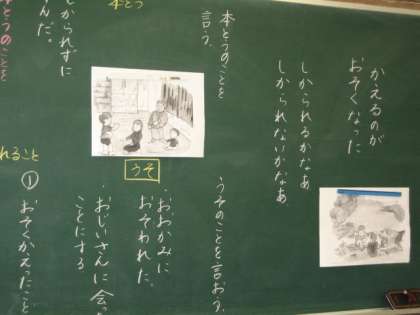 かえるのが
おそくなった
しかられるかなあ
しかられないかなあ
本とうのことを
言う。
うそのことを言おう。
うそ
・おおかみに
おそわれた。
・おじいさんに会っ
ことにする
本とう
しかられずに
んだ。
本とうのことを
れること
①
おそくかえったこと